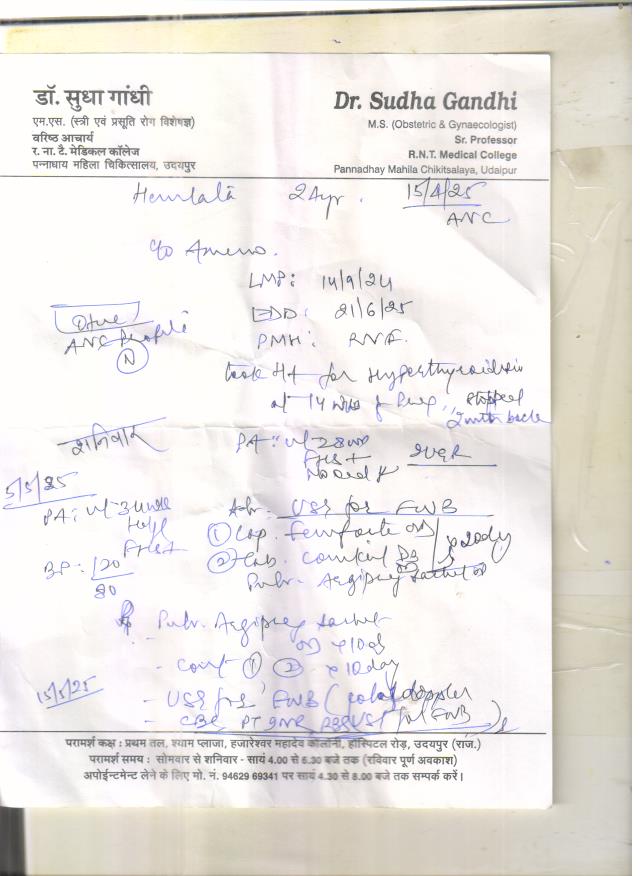 डॉ. सुधा गांधी
एम.एस. (स्त्री एवं प्रसूति रोग विशेषज्ञ)
वरिष्ठ आचार्य
र. ना. टै. मेडिकल कॉलेज
पन्नाधाय महिला चिकित्सालय, उदयपुर
Dr. Sudha Gandhi
M.S. (Obstetric & Gynaecologist)
Sr. Professor
R.N.T. Medical College
Pannadhay Mahila Chikitsalaya, Udaipur
Hemlata 24yr. 15/4/25
ANC
c/o
LMP: 14/9/24
EDD: 21/6/25
ANC Profile
N
PMH:
took for Hyperthyroidism
at 14 wks of Preg, stopped
2 mth back
शनिवार
PA: ut-28wk
FHS+
IUGR
5/5/25
PA: ut-34wks
FHS+
BP: 120
80
Adv: USG for FWB
① Cap. OD
② Tab. x 20 day
Pulv. Argipreg Sachet OD
Pulv. Argipreg Sachet
OD x 10d
- Cont ① ② x 10day
15/5/25
- USG for FWB (color doppler
- CBC PT INR for FWB)
परामर्श कक्ष : प्रथम तल, श्याम प्लाजा, हजारेश्वर महादेव कॉलोनी, हॉस्पिटल रोड़, उदयपुर (राज.)
परामर्श समय : सोमवार से शनिवार - सायं 4.00 से 6.30 बजे तक (रविवार पूर्ण अवकाश)
अपोईन्टमेन्ट लेने के लिए मो. नं. 94629 69341 पर सायं 4.30 से 8.00 बजे तक सम्पर्क करें।